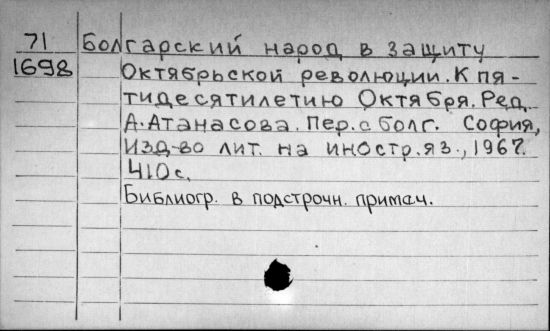 71 Болгарский народ в защиту
1698 Октябрьской революции. К пя-
тидесятилетию Октября. Ред.
А. Атанасова. Пер. с болг. София,
Изд-во лит. на иностр. яз., 1967.
410 с.
Библиогр. в подстрочн. примач.